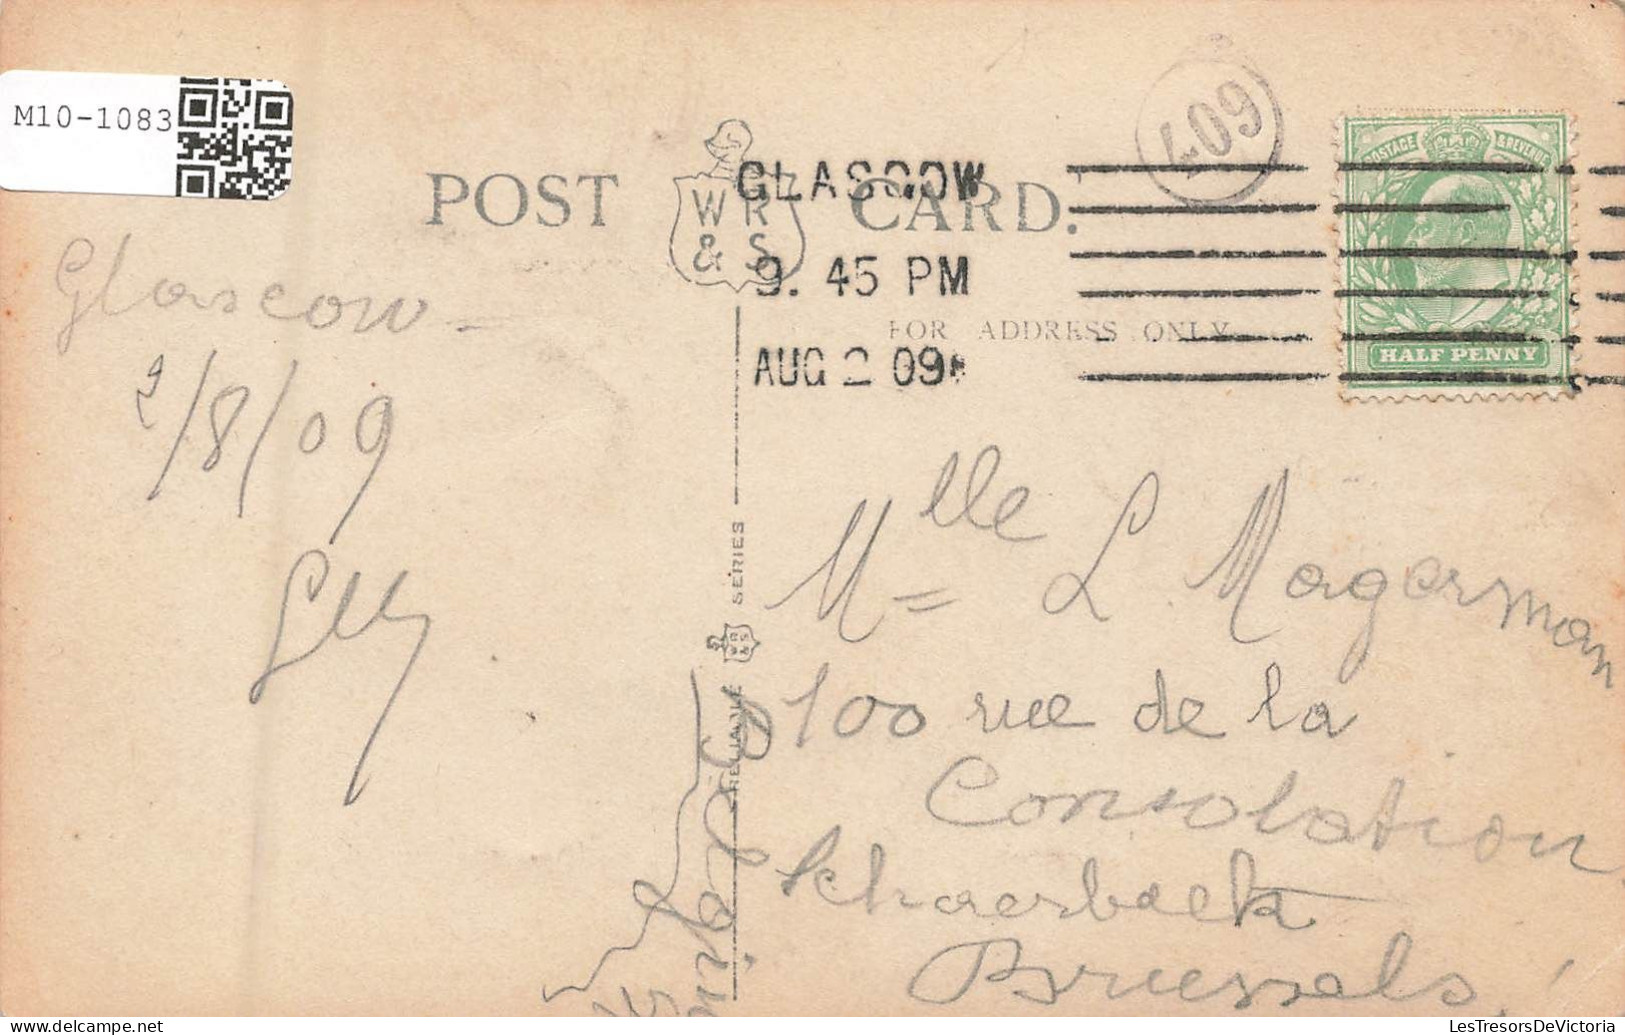 M10-1083
POST CARD.
W R
& S
GLASGOW
9. 45 PM
AUG 2 09
409
POSTAGE & REVENUE
HALF PENNY
FOR ADDRESS ONLY
Glascow -
2/8/09
Elly
RELIABLE
WR & S
SERIES
Mlle L Magerman
100 rue de la
Consolation
Schaerbeek
Brussels
delcampe.net
LesTresorsDeVictoria